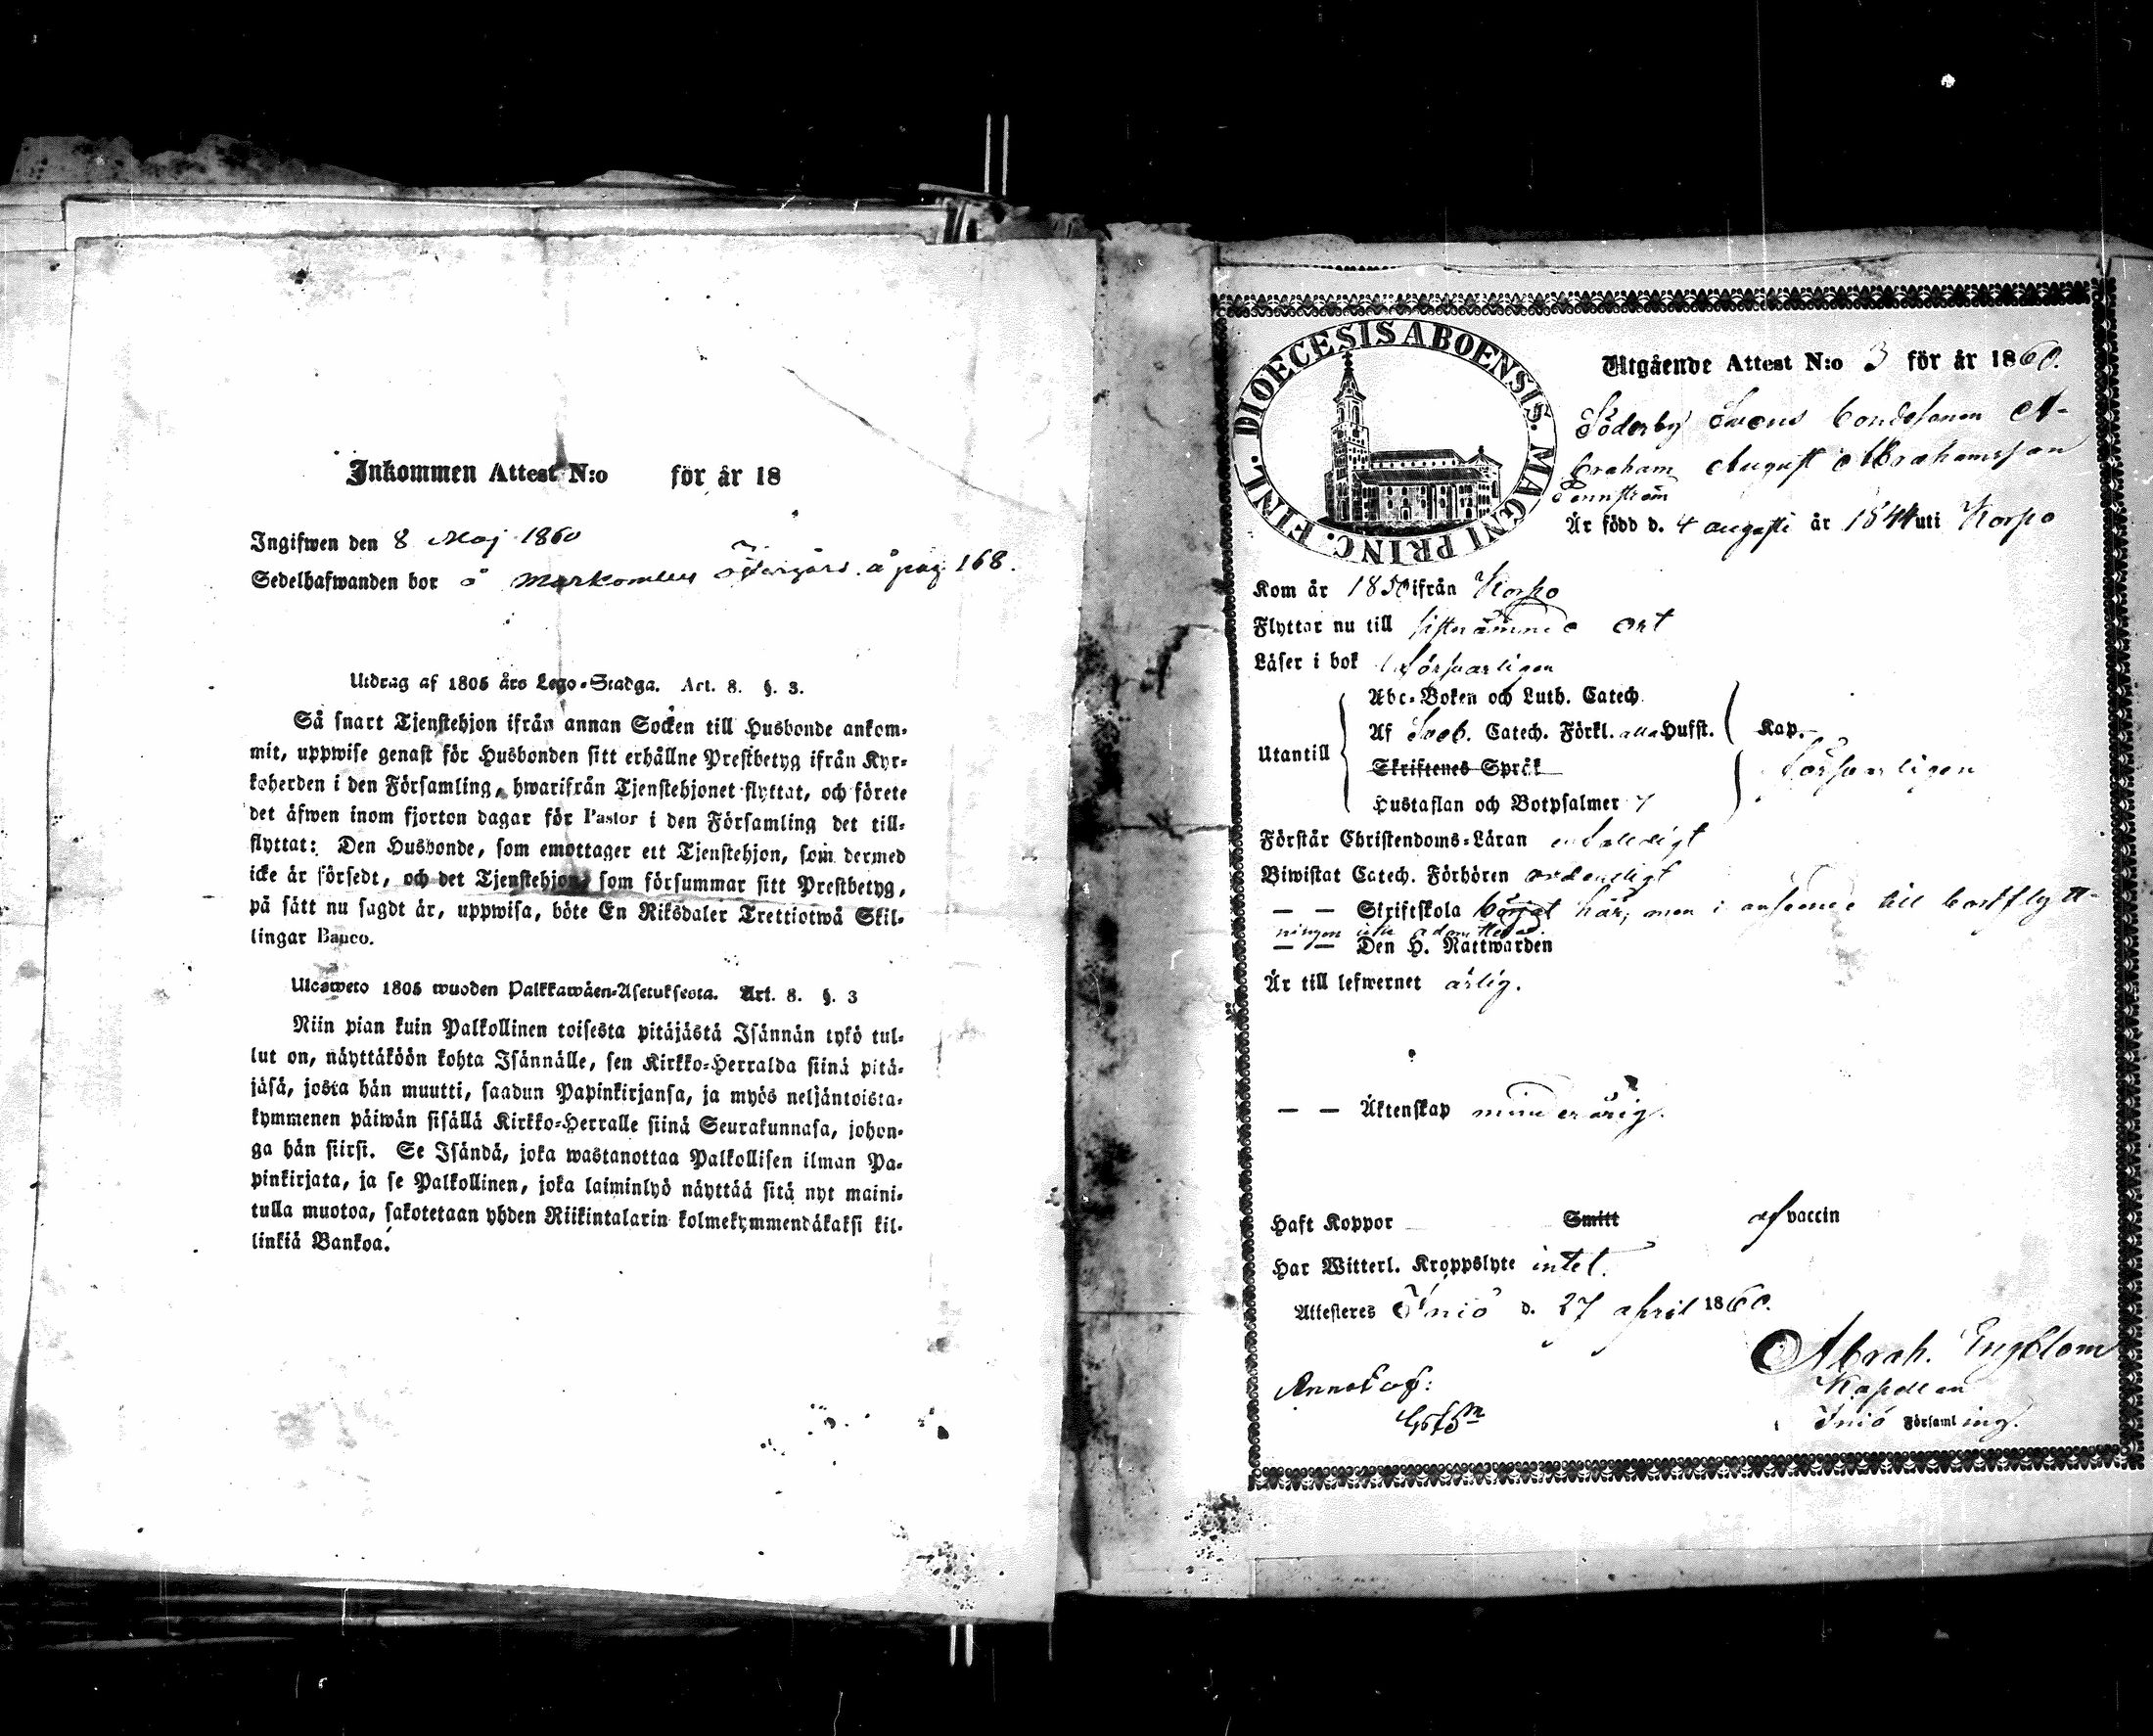 Inkommen Attest N:o för år 18
Ingifwen den 8 Maj 1860
Sedelhafwanden bor å Markomby Östergård å pag. 168.
Utdrag af 1805 års Lego-Stadga. Art. 8. §. 3.
Så snart Tjenstehjon ifrån annan Socken till Husbonde ankom-
mit, uppwise genast för Husbonden sitt erhållne Prestbetyg ifrån Kyr-
koherden i den Församling, hwarifrån Tjenstehjonet flyttat, och förete
det äfwen inom fjorton dagar för Pastor i den Församling det till-
flyttat: Den Husbonde, som emottager ett Tjenstehjon, som dermed
icke är försedt, och det Tjenstehjon, som försummar sitt Prestbetyg,
på sätt nu sagdt är, uppwisa, böte En Riksdaler Trettiotwå Skil-
lingar Banco.
Ulosweto 1805 wuoden Palkkawäen-Asetuksesta. Art. 8. §. 3
Niin pian kuin Palkollinen toisesta pitäjästä Isännän tykö tul-
lut on, näyttäköön kohta Isännälle, sen Kirkko-Herralda siinä pitä-
jäsä, josta hän muutti, saadun Papinkirjansa, ja myös neljäntoista-
kymmenen päiwän sisällä Kirkko-Herralle siinä Seurakunnasa, johon-
ga hän siirsi. Se Isändä, joka wastanottaa Palkollisen ilman Pa-
pinkirjata, ja se Palkollinen, joka laiminlyö näyttää sitä nyt maini-
tulla muotoa, sakotetaan yhden Riikintalarin kolmekymmendäkaksi kil-
linkiä Bankoa.
DIOECESIS ABOENSIS. MAGNI PRINC. FINL.
Utgående Attest N:o 3 för år 1860.
Söderby Svens bondesonen A-
braham August Abrahamsson
Är född d. 4 augusti år 1844 uti Korpo
Kom år 1850 ifrån Korpo
Flyttar nu till sistnämnde ort
Läser i bok försvarligen
Abc-Boken och Luth. Catech.
Af Sveb. Catech. Förkl. alla Hufst. Kap.
Utantill Skriftenes Språk försvarligen
Hustaflan och Botpsalmer 7
Förstår Christendoms-Läran enfaldigt
Biwistat Catech. Förhören ordentligt
— — Skriftskola börjat här, men i anseende till bortflytt-
ningen icke admitterad.
— — Den H. Nattwarden
Är till lefwernet ärlig.
— — Äktenskap minderårig.
Haft Koppor Smitt af vaccin
Har Witterl. Kroppslyte intet.
Attesteres Iniö d. 27 april 1860.
Abrah. Engblom
Kapellan
Iniö Församling.
Annot. af: